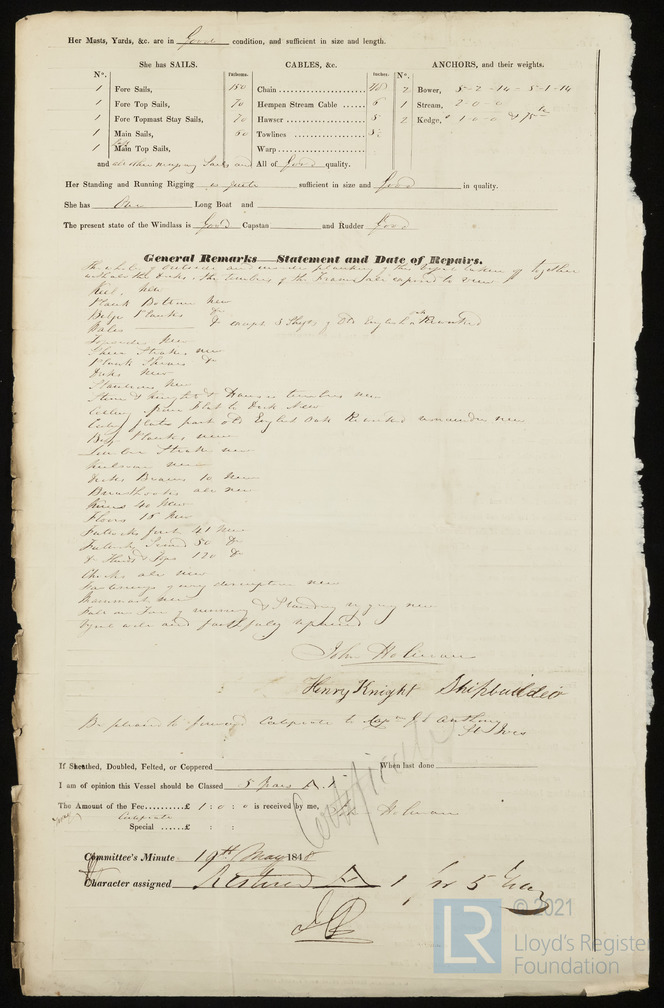 Her Masts, Yards, &c. are in Good condition, and sufficient in size and length.
She has SAILS. CABLES, &c. ANCHORS, and their weights.
No. Fathoms. Inches. No.
1 Fore Sails, 150 Chain 2 Bower, 5-2-14 - 5-1-14
1 Fore Top Sails, 70 Hempen Stream Cable 6 1 Stream, 2-0-0
1 Fore Topmast Stay Sails, 70 Hawser 5 2 Kedge, 1-0-0 & 75 lb
1 Main Sails, 60 Towlines 3½
1 Main Top Sails, Warp
and all other necessary Sails and All of good quality.
Her Standing and Running Rigging is quite sufficient in size and good in quality.
She has One Long Boat and
The present state of the Windlass is Good Capstan and Rudder Good
General Remarks—Statement and Date of Repairs.
The whole of outside and inside planking of this Vessel taken off together
with all the Decks. The timbers of the Frame all exposed to view
Keel. New
Plank Bottom New
Bilge Planks Do
Wales Do except 3 of Old English Oak
Topsides New
Sheer Strakes new
Plank Sheers Do
Decks New
Stanchions New
Stem & Knights & Transom timbers new
Ceiling from Flat to Deck New
Ceiling flats part old English Oak remainder new
Bilge Planks new
Limber Strake new
Keelson new
Decks Beams 10 new
Breasthooks all new
Knees 40 New
Floors 18 New
Futtocks first 41 New
Futtocks Second 50 Do
Do Thirds & Tops 120 Do
Chocks all new
Fastenings of every description new
Mainmast new
Full on Four of running & Standing rigging new
well and faithfully repaired
John Holman
Henry Knight Shipbuilder
Be pleased to forward Certificate to Capn Anthony
St Ives
If Sheathed, Doubled, Felted, or Coppered When last done
I am of opinion this Vessel should be Classed 5 years A 1
The Amount of the Fee £ 1 : 0 : 0 is received by me, John Holman
Certificate
Special £ : :
Certificate
Committee's Minute 19th May 1848
Character assigned Restored A 1 for 5 Years
© 2021
LR Lloyd's Register
Foundation